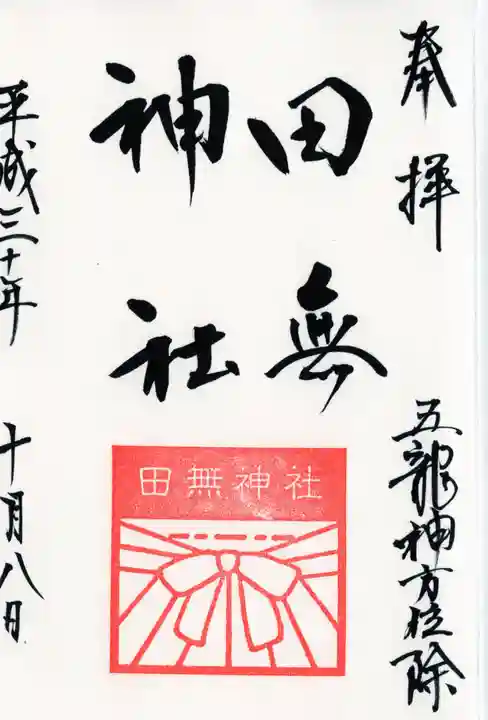 奉拝
五龍神方位除
田無
神社
田無神社
平成三十年
十月八日